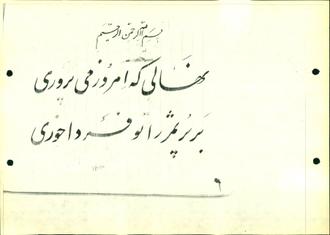 بسم الله الرحمن الرحیم
نهالی که امروز می پروری
بر پر ثمر را تو فردا خوری
۶